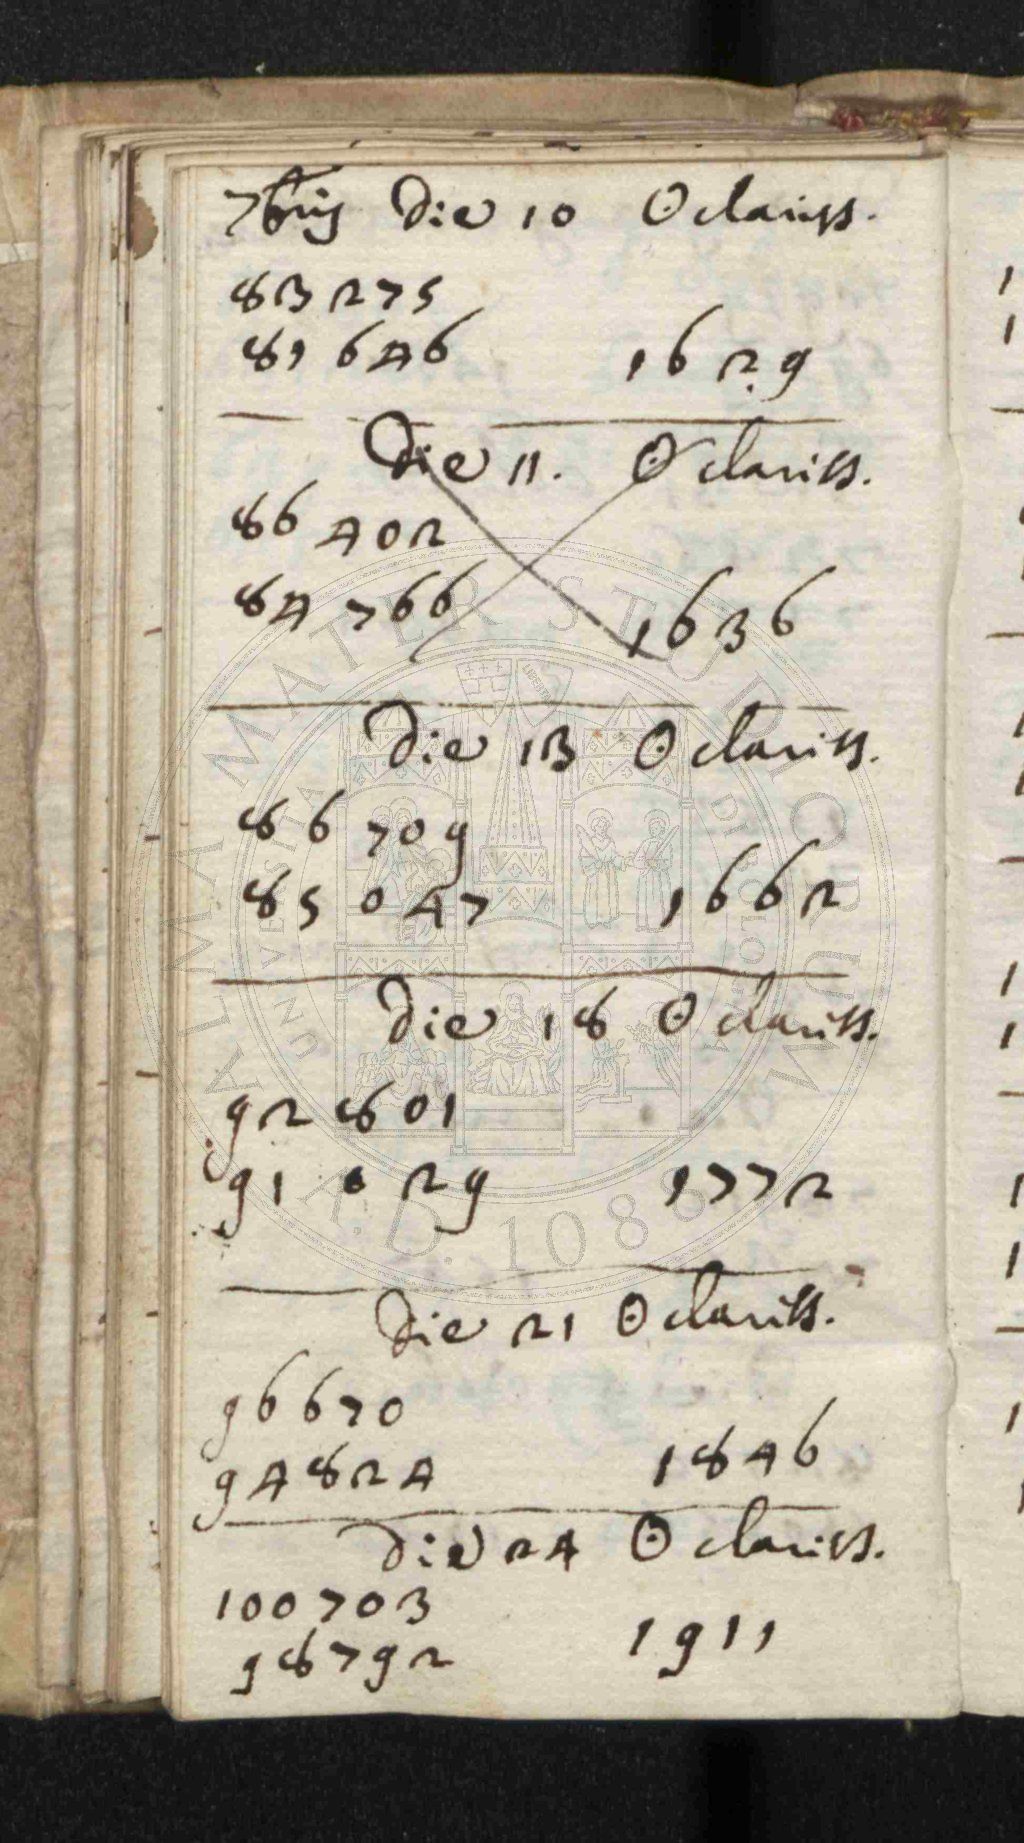 7brij Die 10 ☉ clariss.
83275
81646 1629
Die 11. ☉ clariss.
86402
84766 1636
Die 13 ☉ clariss.
86709
85047 1662
Die 18 ☉ clariss.
92801
91029 1772
Die 21 ☉ clariss.
96670
94824 1846
Die 24 ☉ clariss.
100703
98792 1911
ALMA MATER STUDIORUM
UNIVERSITÀ DI BOLOGNA
A.D. 1088